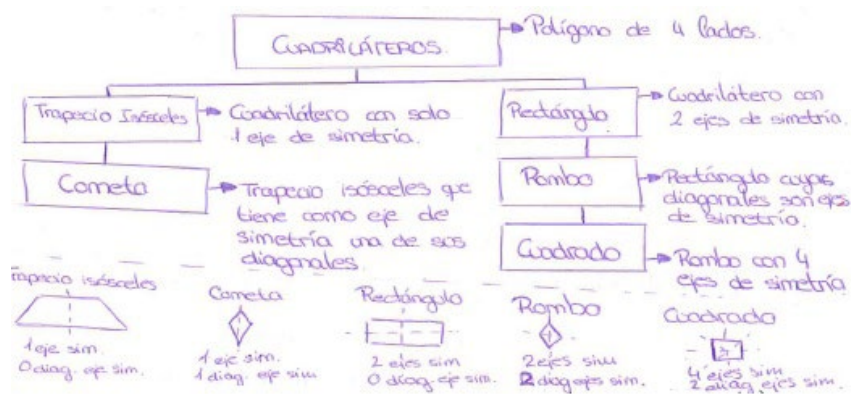 CUADRILÁTEROS.
Polígono de 4 lados.
Trapecio Isósceles
Cuadrilátero con solo
1 eje de simetría.
Rectángulo
Cuadrilátero con
2 ejes de simetría.
Cometa
Trapecio isósceles que
tiene como eje de
simetría una de sus
diagonales.
Rombo
Rectángulo cuyas
diagonales son ejes
de simetría.
Cuadrado
Rombo con 4
ejes de simetría
Trapecio isósceles
1 eje sim.
0 diag. eje sim.
Cometa
1 eje sim.
1 diag. eje sim
Rectángulo
2 ejes sim
0 diag. eje sim.
Rombo
2 ejes sim
2 diag ejes sim.
Cuadrado
4 ejes sim
2 diag ejes sim.